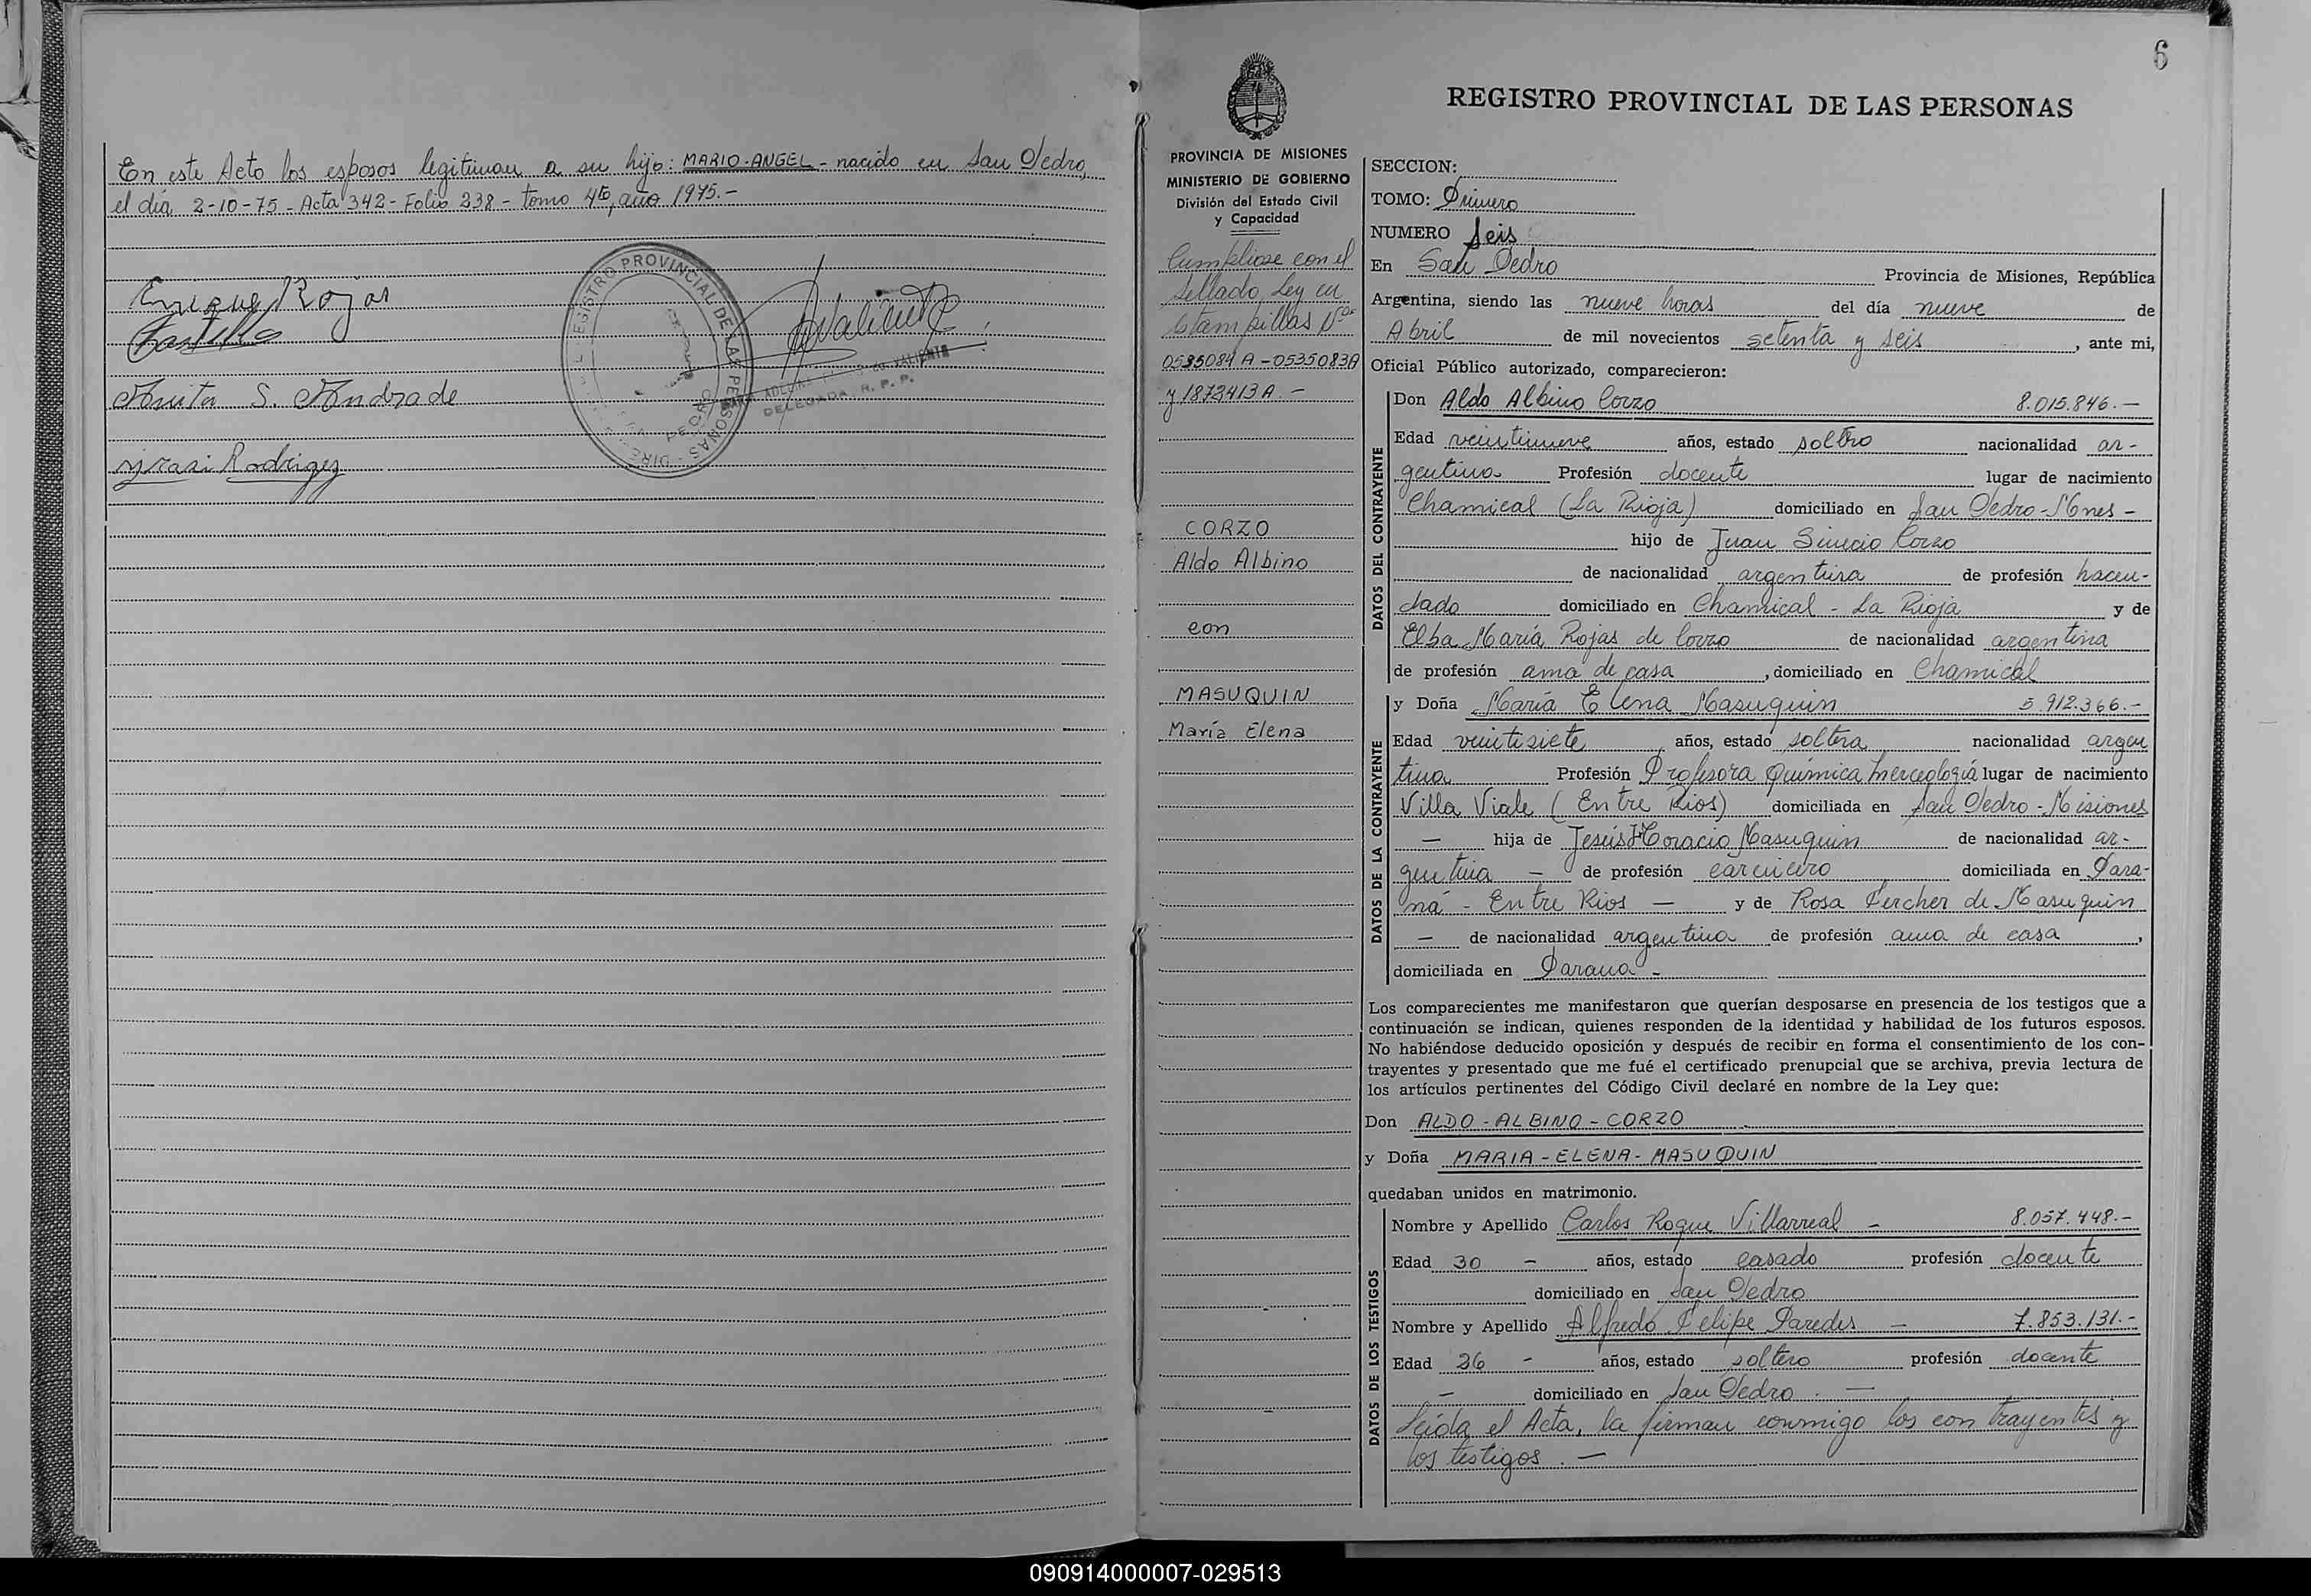 En este Acto los esposos legitiman a su hijo: MARIO-ANGEL - nacido en San Pedro,
el día 2-10-75 - Acta 342 - Folio 238 - tomo 4to, año 1975.-
Enrique Rojas
Castillo
Anita S. Andrade
Rodrigez
REGISTRO PROVINCIAL DE LAS PERSONAS
DELEGADA R. P. P.
6
REGISTRO PROVINCIAL DE LAS PERSONAS
PROVINCIA DE MISIONES
MINISTERIO DE GOBIERNO
División del Estado Civil
y Capacidad
Cumpliose con el
Sellado Ley en
Estampillas Nos
0535084 A - 0535083A
y 1872413 A. -
CORZO
Aldo Albino
con
MASUQUIN
María Elena
SECCION:
TOMO: Primero
NUMERO Seis
En San Pedro Provincia de Misiones, República
Argentina, siendo las nueve horas del día nueve de
Abril de mil novecientos setenta y seis, ante mi,
Oficial Público autorizado, comparecieron:
DATOS DEL CONTRAYENTE
Don Aldo Albino Corzo 8.015.846.-
Edad veintinueve años, estado soltero nacionalidad ar-
gentina Profesión docente lugar de nacimiento
Chamical (La Rioja) domiciliado en San Pedro - Mnes -
hijo de Juan Corzo
de nacionalidad argentina de profesión hacen-
dado domiciliado en Chamical - La Rioja y de
Elba María Rojas de Corzo de nacionalidad argentina
de profesión ama de casa, domiciliado en Chamical
DATOS DE LA CONTRAYENTE
y Doña María Elena Masuquin 5.912.366.-
Edad veintisiete años, estado soltera nacionalidad argen
tina Profesión Profesora Química Merceología lugar de nacimiento
Villa Viale (Entre Rios) domiciliada en San Pedro - Misiones
— hija de Jesús Horacio Masuquin de nacionalidad ar-
gentina — de profesión carnicero domiciliada en Para-
ná - Entre Rios — y de Rosa Percher de Masuquin
— de nacionalidad argentina de profesión ama de casa,
domiciliada en Parana -
Los comparecientes me manifestaron que querían desposarse en presencia de los testigos que a
continuación se indican, quienes responden de la identidad y habilidad de los futuros esposos.
No habiéndose deducido oposición y después de recibir en forma el consentimiento de los con-
trayentes y presentado que me fué el certificado prenupcial que se archiva, previa lectura de
los artículos pertinentes del Código Civil declaré en nombre de la Ley que:
Don ALDO - ALBINO - CORZO
y Doña MARIA - ELENA - MASUQUIN
quedaban unidos en matrimonio.
DATOS DE LOS TESTIGOS
Nombre y Apellido Carlos Roque Villarreal - 8.057.448.-
Edad 30 - años, estado casado profesión docente
domiciliado en San Pedro
Nombre y Apellido Alfredo Felipe Paredes - 7.853.131.-
Edad 26 - años, estado soltero profesión docente
— domiciliado en San Pedro. —
Leida el Acta, la firman conmigo los contrayentes y
los testigos. —
090914000007-029513